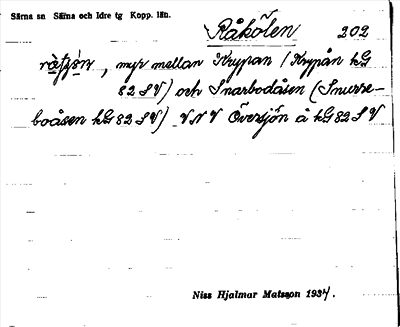 Särna sn Särna och Idre tg Kopp. län.
Råkölen 202
, myr mellan Krypan (Krypån hG
82 SV) och Snarbodåsen (Snurre-
boåsen hG 82 SV) VNV Översjön å hG 82 SV
Niss Hjalmar Matsson 1934.